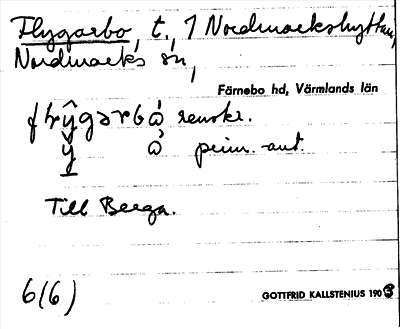 Flygarbo, t. 1 Nordmarkshyttan,
Nordmarks sn,
Färnebo hd, Värmlands län
renskr.
prim. ant.
Till Berga.
6(6)
GOTTFRID KALLSTENIUS 1903